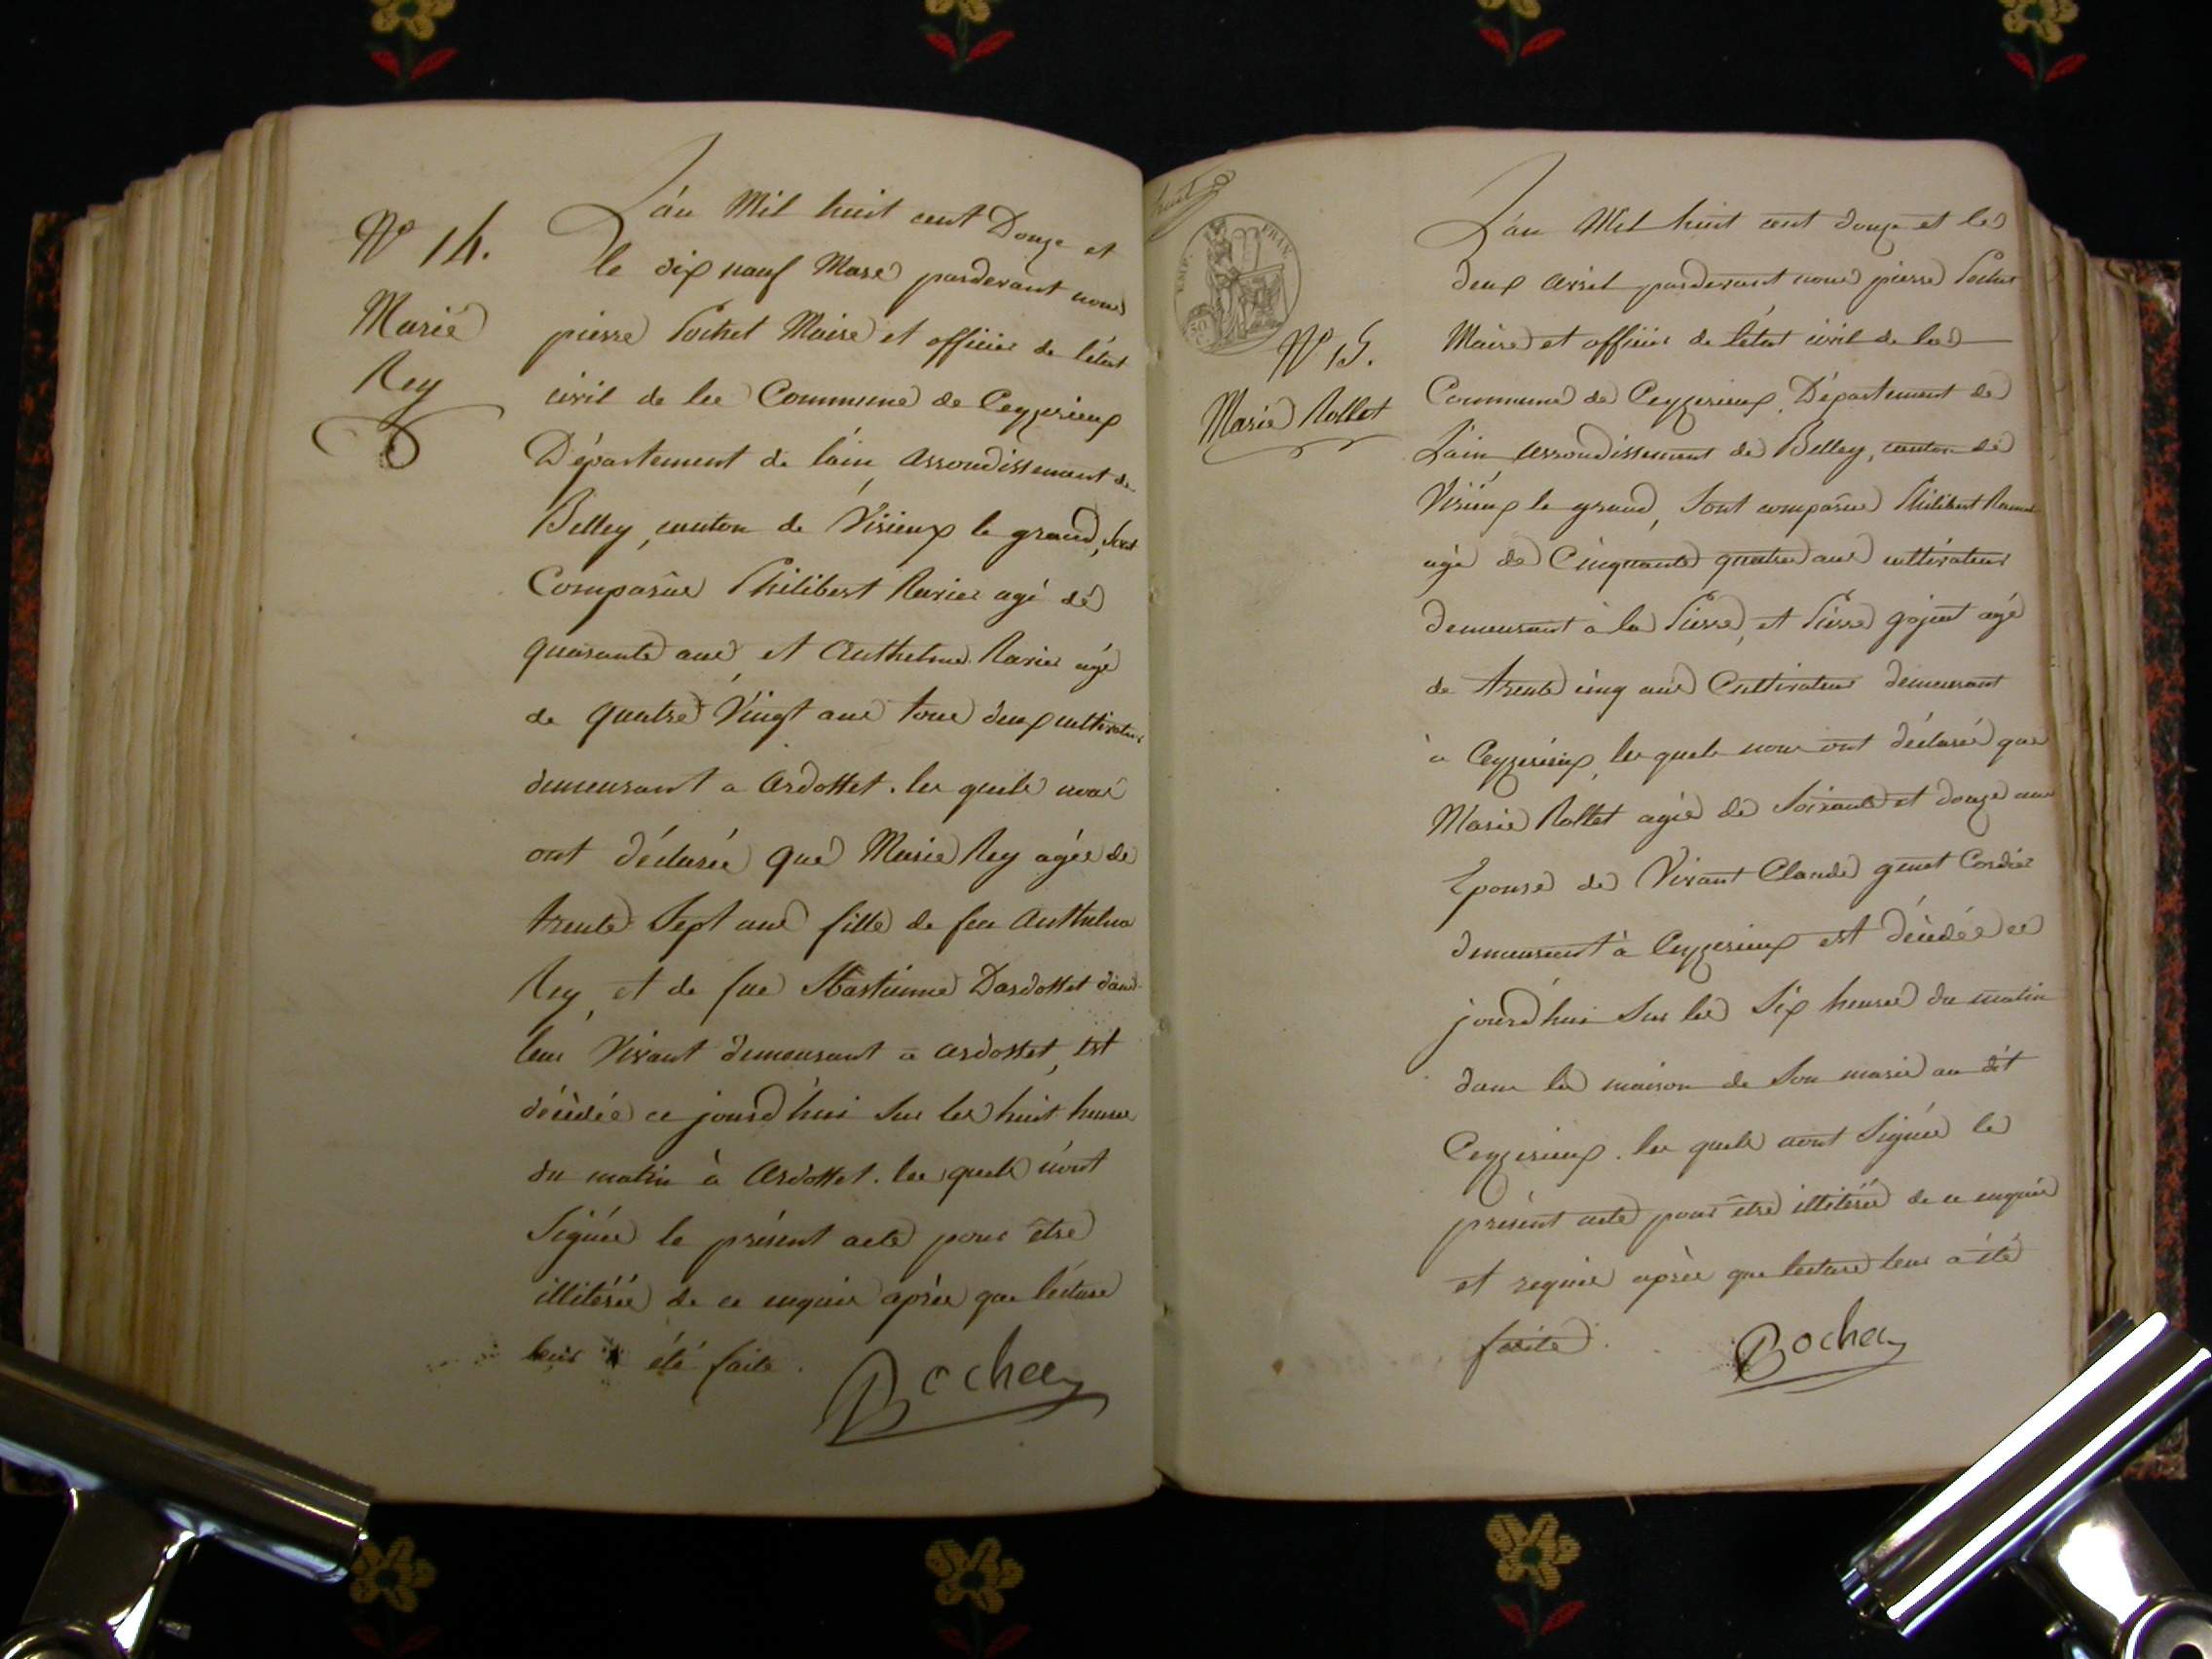 Nº 14.
Marie
Rey
L'an Mil huit cent Douze et
le dix neuf Mars pardevant nous
pierre Pochet Maire et officier de l'état
civil de la Commune de Ceyzerieux
Département de l'ain, Arrondissement de
Belley, canton de Virieux le grand, sont
Comparus Philibert Ravier agé de
quarante ans, et Anthelme Ravier agé
de quatre Vingt ans tous deux cultivateurs
demeurant a Ardottet. les quels nous
ont déclarés que Marie Rey agée de
trente Sept ans fille de feu Anthelme
Rey, et de fue Dardottet dans
leur Vivant demeurant a ardottet, est
décédée ce jourd'hui Sur les huit heures
du matin à Ardottet. les quels n'ont
Signés le présent acte pour être
illitérés de ce enquis après que lécture
leur a été faite.
Bochet
huit
EMP. FRAN.
50 C.
Nº 15.
Marie Rollet
L'an Mil huit cent douze et les
deux avril pardevant nous pierre Pochet
Maire et officier de l'état civil de la
Commune de Ceyzerieux, Département de
L'ain Arrondissement de Belley, canton de
Virieux le grand, Sont comparus Philibert
agé de Cinquante quatre ans cultivateur
demeurant à la Pierre, et Pierre gojout agé
de trente cinq ans Cultivateur demeurant
à Ceyzerieux, les quels nous ont déclarés que
Marie Rollet agée de Soixante et douze ans
Epouse de Vivant Claude genet Cordier
demeurant à Ceyzerieux est décédée ce
jourd'hui Sur les Six heures du matin
dans la maison de Son marié au dit
Ceyzerieux. les quels n'ont Signés le
présent acte pour être illitérés de ce enquis
et requis après que lecture leur a été
faite.
Bochet